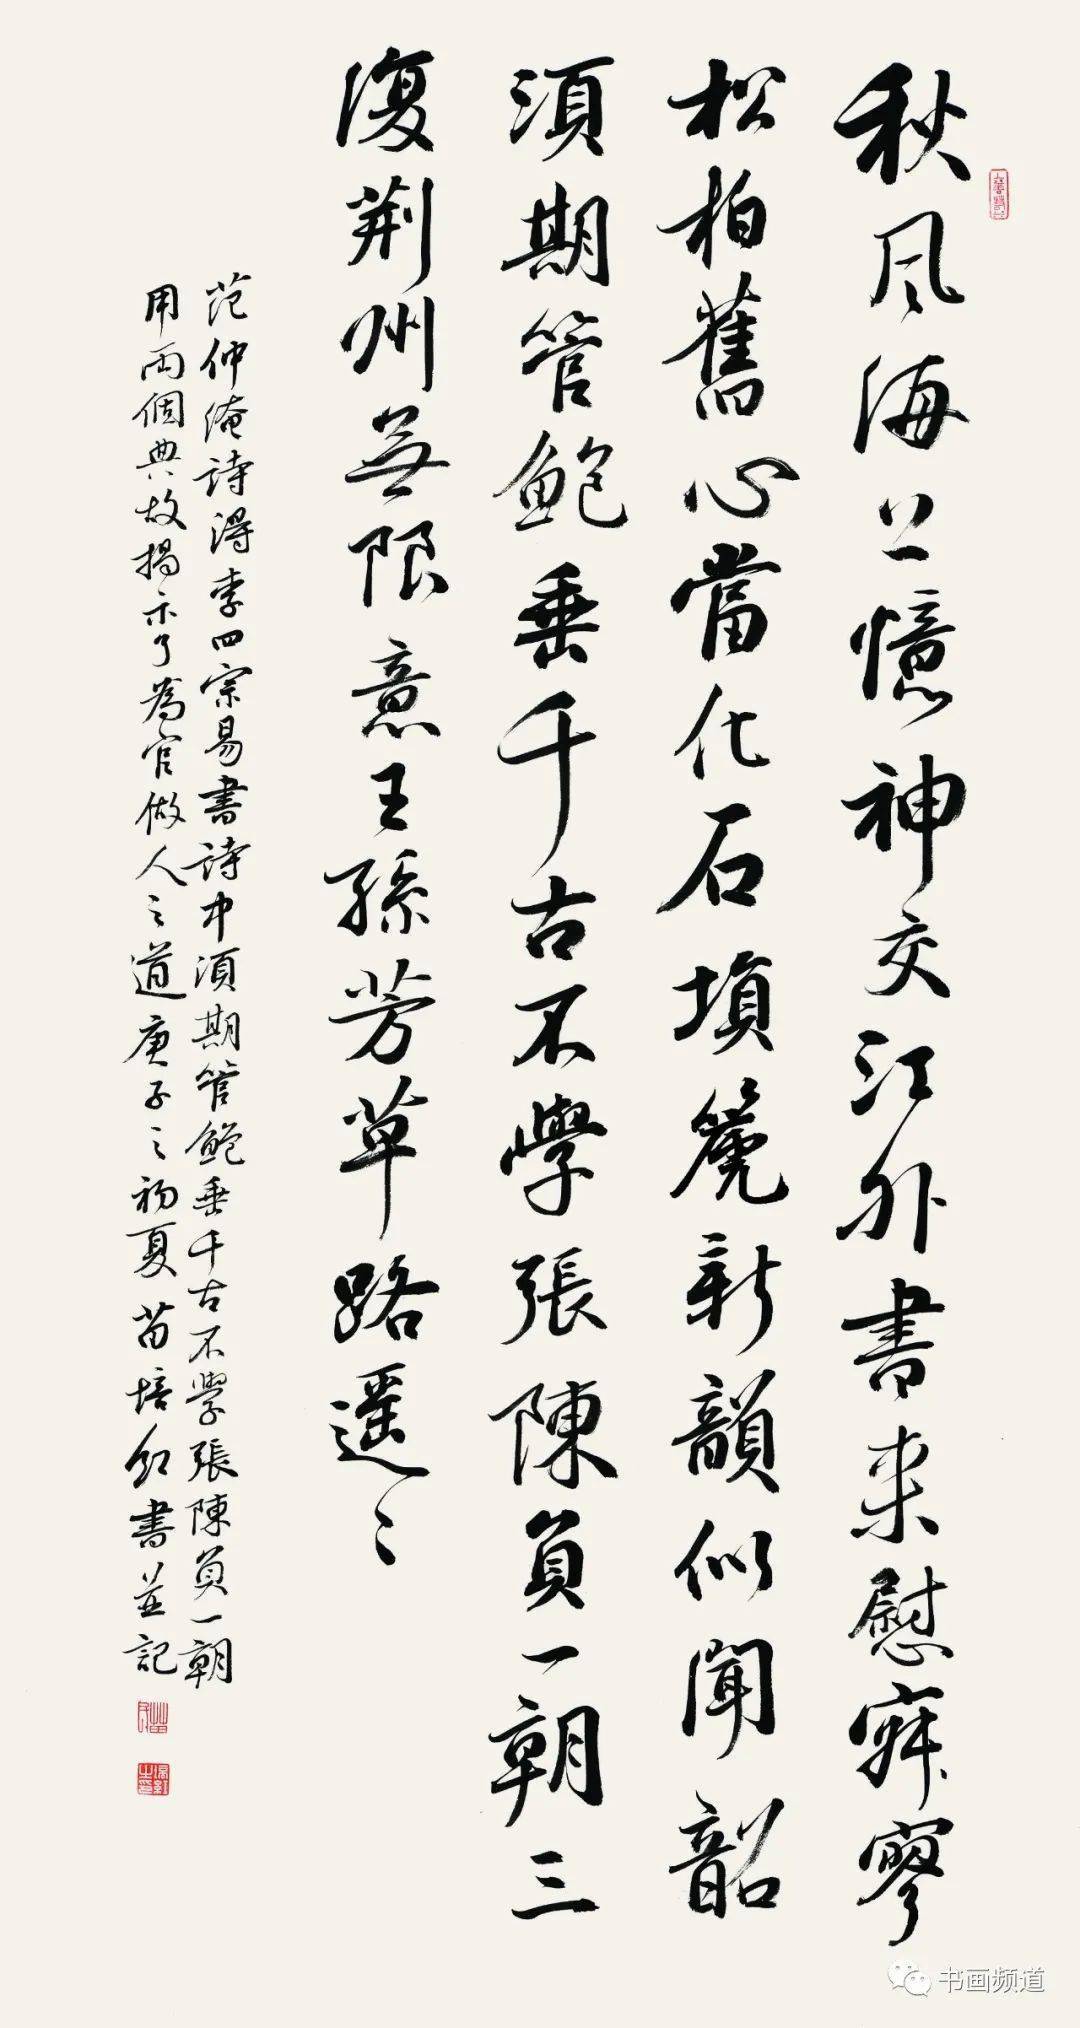 秋风海上憶神交江外書来慰寂寥
松柏舊心當化石埙篪新韻似聞韶
須期管鲍垂千古不學張陳負一朝三
復荆州無限意王孫芳草路遥〻
范仲淹詩得李四宗易書詩中須期管鲍垂千古不學張陳負一朝
用兩個典故揭示了為官做人之道庚子之初夏苗培红書並記
书画频道